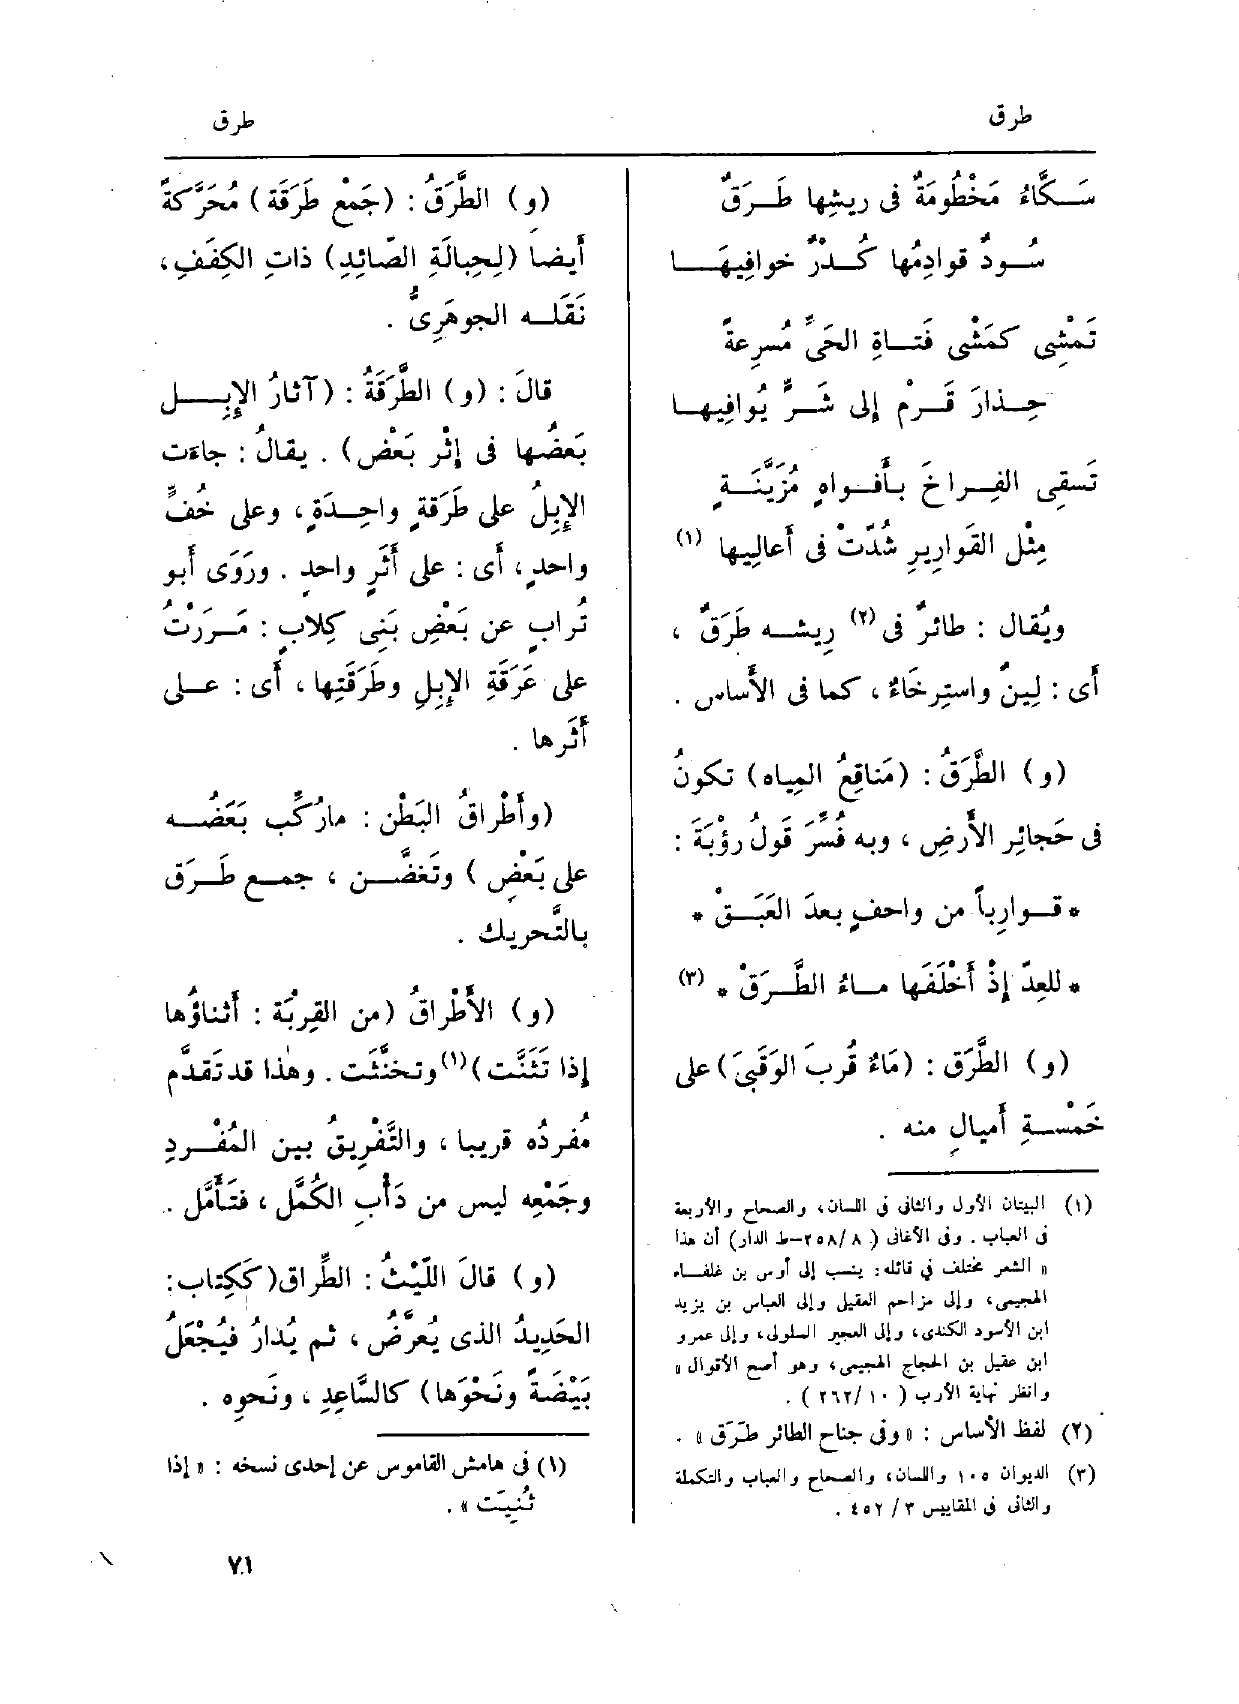 طرق
طرق
سَـكَّاءُ مَخْطُومَةٌ فى رِيشِها طَـرَقٌ
سُـودٌ قوادِمُها كُـدْرٌ خوافِيهَـا
تَمْشِى كمَشْىِ فَتـاةِ الحَىِّ مُسرِعةً
حِـذارَ قَـرْمٍ إلى شَـرٍّ يُوافِيهـا
تَسقِى الفِـراخَ بـأَفـواهٍ مُزَيَّنَـةٍ
مِثْل القَوارِيرِ شُدّتْ فى أَعالِيها (١)
ويُقال : طائرٌ فى (٢) رِيشـه طَرَقٌ ،
أى : لِينٌ واستِرخَاءٌ ، كما فى الأَساس .
(و) الطَّرَقُ : (مَناقِعُ المِياه) تكونُ
فى حَجائِر الأَرضِ ، وبه فُسِّرَ قَولُ رؤْبَةَ :
* قـوارِباً من واحفٍ بعدَ العَبَـقْ *
* للعِدّ إذْ أَخْلَفَها مـاءُ الطَّـرَقْ * (٣)
(و) الطَّرَق : (مَاءٌ قُربَ الوَقَبىَ) على
خَمْسـةِ أَميالٍ منه .
(١) البيتان الأول والثانى فى اللسان، والصحاح والأربعة
فى العباب . وفى الأغانى (٨ /٢٥٨–ط الدار) أن هذا
« الشعر مختلف فى قائله: ينسب إلى أوس بن غلفـاء
الهجيمى، وإلى مزاحم العقيلى وإلى العباس بن يزيد
ابن الأسود الكندى، وإلى العجير السلولى، وإلى عمرو
ابن عقيل بن الحجاج الهجيمى، وهو أصح الأقوال »
وانظر نهاية الأرب (١٠ /٢٦٢) .
(٢) لفظ الأساس : « وفى جناح الطائر طَرَق » .
(٣) الديوان ١٠٥ واللسان، والصحاح والعباب والتكملة
والثانى فى المقاييس ٣ /٤٥٢ .
(و) الطَّرَقُ : (جَمْع طَرَقَة) مُحَرَّكةً
أَيضا (لِحِبالَةِ الصّائِدِ) ذاتِ الكِفَفِ،
نَقَلـه الجوهَرِىُّ .
قالَ : (و) الطَّرَقَةُ : (آثارُ الإِبِــل
بَعضُها فى إِثْر بَعْض) . يقالُ : جاءَت
الإِبِلُ على طَرَقةٍ واحِـدَةٍ ، وعلى خُفٍّ
واحدٍ ، أى : على أَثَرٍ واحدٍ . ورَوَى أَبو
تُرابٍ عن بَعْضِ بَنِى كِلابٍ : مَـرَرْتُ
على عَرَقَةِ الإِبِلِ وطَرَقَتِها ، أَى : عـلى
أَثَرها .
(وأَطْراقُ البَطْن : مارُكِّب بَعَضُـه
على بَعْضٍ ) وتَغضَّـن ، جمـع طَـرَق
بالتَّحريك .
(و) الأَطْراقُ (من القِربْة : أَثناؤُها
إذا تَثَنَّت)(١)وتخنَّثَت . وهٰذا قد تَقدَّم
مُفردُه قريبا ، والتَّفْرِيقُ بين المُفْـردِ
وجَمْعِه ليس من دَأْبِ الكُمَّل ، فتَأَمَّل .
(و) قالَ اللّيْثُ : الطِّراق(كَكِتاب:
الحَدِيدُ الذى يُعرَّضُ ، ثم يُدارُ فيُجْعَلُ
بَيْضَةً ونَحْوَها) كالسَّاعِدِ ، ونَحوِه .
(١) فى هامش القاموس عن إحدى نسخه : « إذا
ثُنِيَت » .
٧١